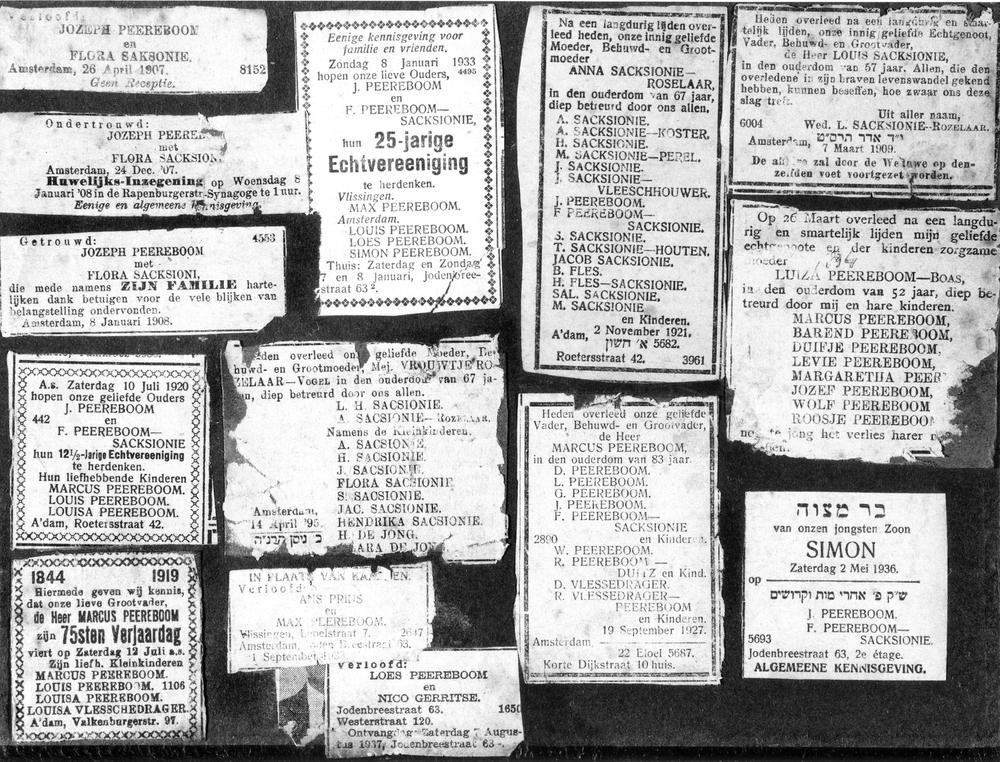 Verloofd:
JOZEPH PEEREBOOM
en
FLORA SAKSONIE.
Amsterdam, 26 April 1907. 8152
Geen Receptie.
Ondertrouwd:
JOZEPH
met
FLORA
Amsterdam, 24 Dec. '07.
Huwelijks-Inzegening op Woensdag 8
Januari '08 in de Rapenburgerstr-Synagoge te 1 uur.
Eenige en algemeene kennisgeving.
Getrouwd: 4553
JOZEPH PEEREBOOM
met
FLORA SACKSIONI,
die mede namens ZIJN FAMILIE harte-
lijken dank betuigen voor de vele blijken van
belangstelling ondervonden.
Amsterdam, 8 Januari 1908.
A.s. Zaterdag 10 Juli 1920
hopen onze geliefde Ouders
J. PEEREBOOM
442 en
F. PEEREBOOM—
SACKSIONIE
hun 12½-jarige Echtvereeniging
te herdenken.
Hun liefhebbende Kinderen
MARCUS PEEREBOOM.
LOUIS PEEREBOOM.
LOUISA PEEREBOOM.
A'dam, Roetersstraat 42.
1844 1919
Hiermede geven wij kennis,
dat onze lieve Grootvader,
de Heer MARCUS PEEREBOOM
zijn 75sten Verjaardag
viert op Zaterdag 12 Juli a.s.
Zijn liefh. Kleinkinderen
MARCUS PEEREBOOM.
LOUIS PEEREBOOM. 1106
LOUISA PEEREBOOM.
LOUISA VLESSCHEDRAGER.
A'dam, Valkenburgerstr. 97.
Eenige kennisgeving voor
familie en vrienden.
Zondag 8 Januari 1933
hopen onze lieve Ouders, 4495
J. PEEREBOOM
en
F. PEEREBOOM—
SACKSIONIE,
hun 25-jarige
Echtvereeniging
te herdenken.
Vlissingen.
MAX PEEREBOOM.
Amsterdam.
LOUIS PEEREBOOM.
LOES PEEREBOOM.
SIMON PEEREBOOM.
Thuis: Zaterdag en Zondag
7 en 8 Januari, Jodenbree-
straat 63 2.
Heden overleed onze geliefde Moeder, Be-
huwd- en Grootmoeder, Mej. VROUWTJE RO-
ZELAAR—VOGEL in den ouderdom van 67 ja-
ren, diep betreurd door ons allen.
L. H. SACSIONIE.
A. SACSIONIE—ROZELAAR.
Namens de Kleinkinderen.
A. SACSIONIE.
H. SACSIONIE.
J. SACSIONIE.
FLORA SACSIONIE
S. SACSIONIE.
JAC. SACSIONIE.
Amsterdam, HENDRIKA SACSIONIE.
14 April '95. H. DE JONG.
DE JON
IN PLAATS VAN KAARTEN.
Verloofd:
ANS PRINS
en
MAX PEEREBOOM.
Vlissingen, 7. 2647
Amsterdam, Joden Breestraat 63.
1 September
Verloofd:
LOES PEEREBOOM
en
NICO GERRITSE.
Jodenbreestraat 63. 1650
Westerstraat 120.
Ontvangdag Zaterdag 7 Augus-
tus 1937, Jodenbreestraat 63
Na een langdurig lijden over-
leed heden, onze innig geliefde
Moeder, Behuwd- en Groot-
moeder
ANNA SACKSIONIE—
ROSELAAR,
in den ouderdom van 67 jaar,
diep betreurd door ons allen.
A. SACKSIONIE.
A. SACKSIONIE—KOSTER.
H. SACKSIONIE.
M. SACKSIONIE—PEREL.
J. SACKSIONIE.
J. SACKSIONIE—
VLEESCHHOUWER.
J. PEEREBOOM.
F PEEREBOOM—
SACKSIONIE.
S. SACKSIONIE.
T. SACKSIONIE—HOUTEN.
JACOB SACKSIONIE.
B. FLES.
H. FLES—SACKSIONIE.
SAL. SACKSIONIE.
M. SACKSIONIE.
en Kinderen.
A'dam, 2 November 1921.
א' חשון 5682.
Roetersstraat 42. 3961
Heden overleed onze geliefde
Vader, Behuwd- en Grootvader,
de Heer
MARCUS PEEREBOOM,
in den ouderdom van 83 jaar.
D. PEEREBOOM.
L. PEEREBOOM.
G. PEEREBOOM.
J. PEEREBOOM.
F. PEEREBOOM—
SACKSIONIE
2890 en Kinderen.
W. PEEREBOOM.
R. PEEREBOOM—
DUITZ en Kind.
D. VLESSEDRAGER.
R. VLESSEDRAGER—
PEEREBOOM
en Kinderen.
19 September 1927.
Amsterdam, 22 Eloel 5687.
Korte Dijkstraat 10 huis.
Heden overleed na een langdurig en smar-
telijk lijden, onze innig geliefde Echtgenoot,
Vader, Behuwd- en Grootvader,
de Heer LOUIS SACKSIONIE,
in den ouderdom van 57 jaar. Allen, die den
overledene in zijn braven levenswandel gekend
hebben, kunnen beseffen, hoe zwaar ons deze
slag treft.
Uit aller naam,
6004 Wed. L. SACKSIONIE-ROZELAAR.
Amsterdam, י"ד אדר תרס"ט
7 Maart 1909.
De zal door de Weduwe op den-
zelfden voet voortgezet worden.
Op 26 Maart overleed na een langdu-
rig en smartelijk lijden mijn geliefde
echtgenoote en der kinderen zorgzame
moeder
LUIZA PEEREBOOM—BOAS,
in den ouderdom van 52 jaar, diep be-
treurd door mij en hare kinderen.
MARCUS PEEREBOOM,
BAREND PEEREBOOM,
DUIFJE PEEREBOOM,
LEVIE PEEREBOOM,
MARGARETHA PEER
JOZEF PEEREBOOM,
WOLF PEEREBOOM
ROOSJE PEEREBOOM
te jong het verlies harer
בר מצוה
van onzen jongsten Zoon
SIMON
Zaterdag 2 Mei 1936.
op
ש"ק פ' אחרי מות וקדושים
J. PEEREBOOM.
F. PEEREBOOM—
5693 SACKSIONIE.
Jodenbreestraat 63, 2e étage.
ALGEMEENE KENNISGEVING.